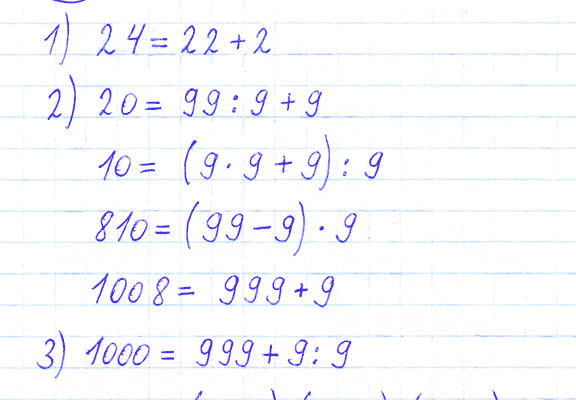 1) 24 = 22 + 2
2) 20 = 99 : 9 + 9
10 = (9 · 9 + 9) : 9
810 = (99 - 9) · 9
1008 = 999 + 9
3) 1000 = 999 + 9 : 9